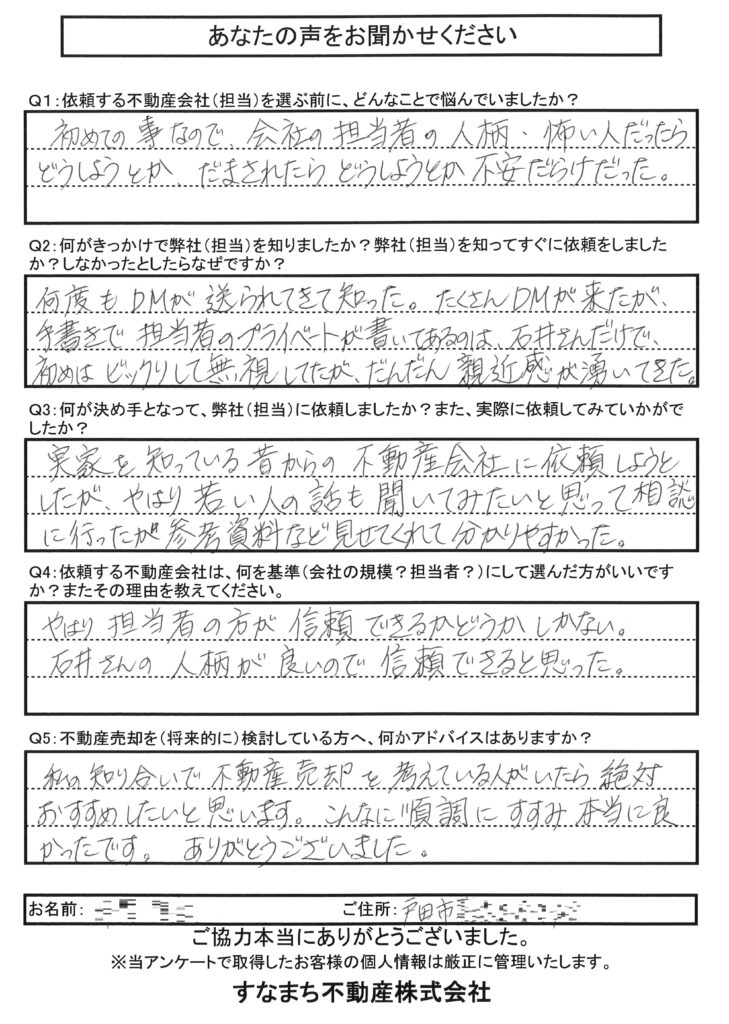 あなたの声をお聞かせください
Q1：依頼する不動産会社（担当）を選ぶ前に、どんなことで悩んでいましたか？
初めての事なので、会社の担当者の人柄・怖い人だったら
どうしようとか、だまされたらどうしようとか不安だらけだった。
Q2：何がきっかけで弊社（担当）を知りましたか？弊社（担当）を知ってすぐに依頼をしました
か？しなかったとしたらなぜですか？
何度もDMが送られてきて知った。たくさんDMが来たが、
手書きで担当者のプライベートが書いてあるのは、石井さんだけで、
初めはビックリして無視してたが、だんだん親近感が湧いてきた。
Q3：何が決め手となって、弊社（担当）に依頼しましたか？また、実際に依頼してみていかがで
したか？
実家を知っている昔からの不動産会社に依頼しようと
したが、やはり若い人の話も聞いてみたいと思って相談
に行ったが参考資料など見せてくれて分かりやすかった。
Q4：依頼する不動産会社は、何を基準（会社の規模？担当者？）にして選んだ方がいいです
か？またその理由を教えてください。
やはり担当者の方が信頼できるかどうかしかない。
石井さんの人柄が良いので信頼できると思った。
Q5：不動産売却を（将来的に）検討している方へ、何かアドバイスはありますか？
私の知り合いで不動産売却を考えている人がいたら絶対
おすすめしたいと思います。こんなに順調にすすみ本当に良
かったです。ありがとうございました。
お名前： ご住所：戸田市
ご協力本当にありがとうございました。
※当アンケートで取得したお客様の個人情報は厳正に管理いたします。
すなまち不動産株式会社